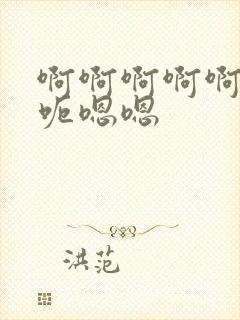 啊啊啊啊啊
呃嗯嗯
洪范